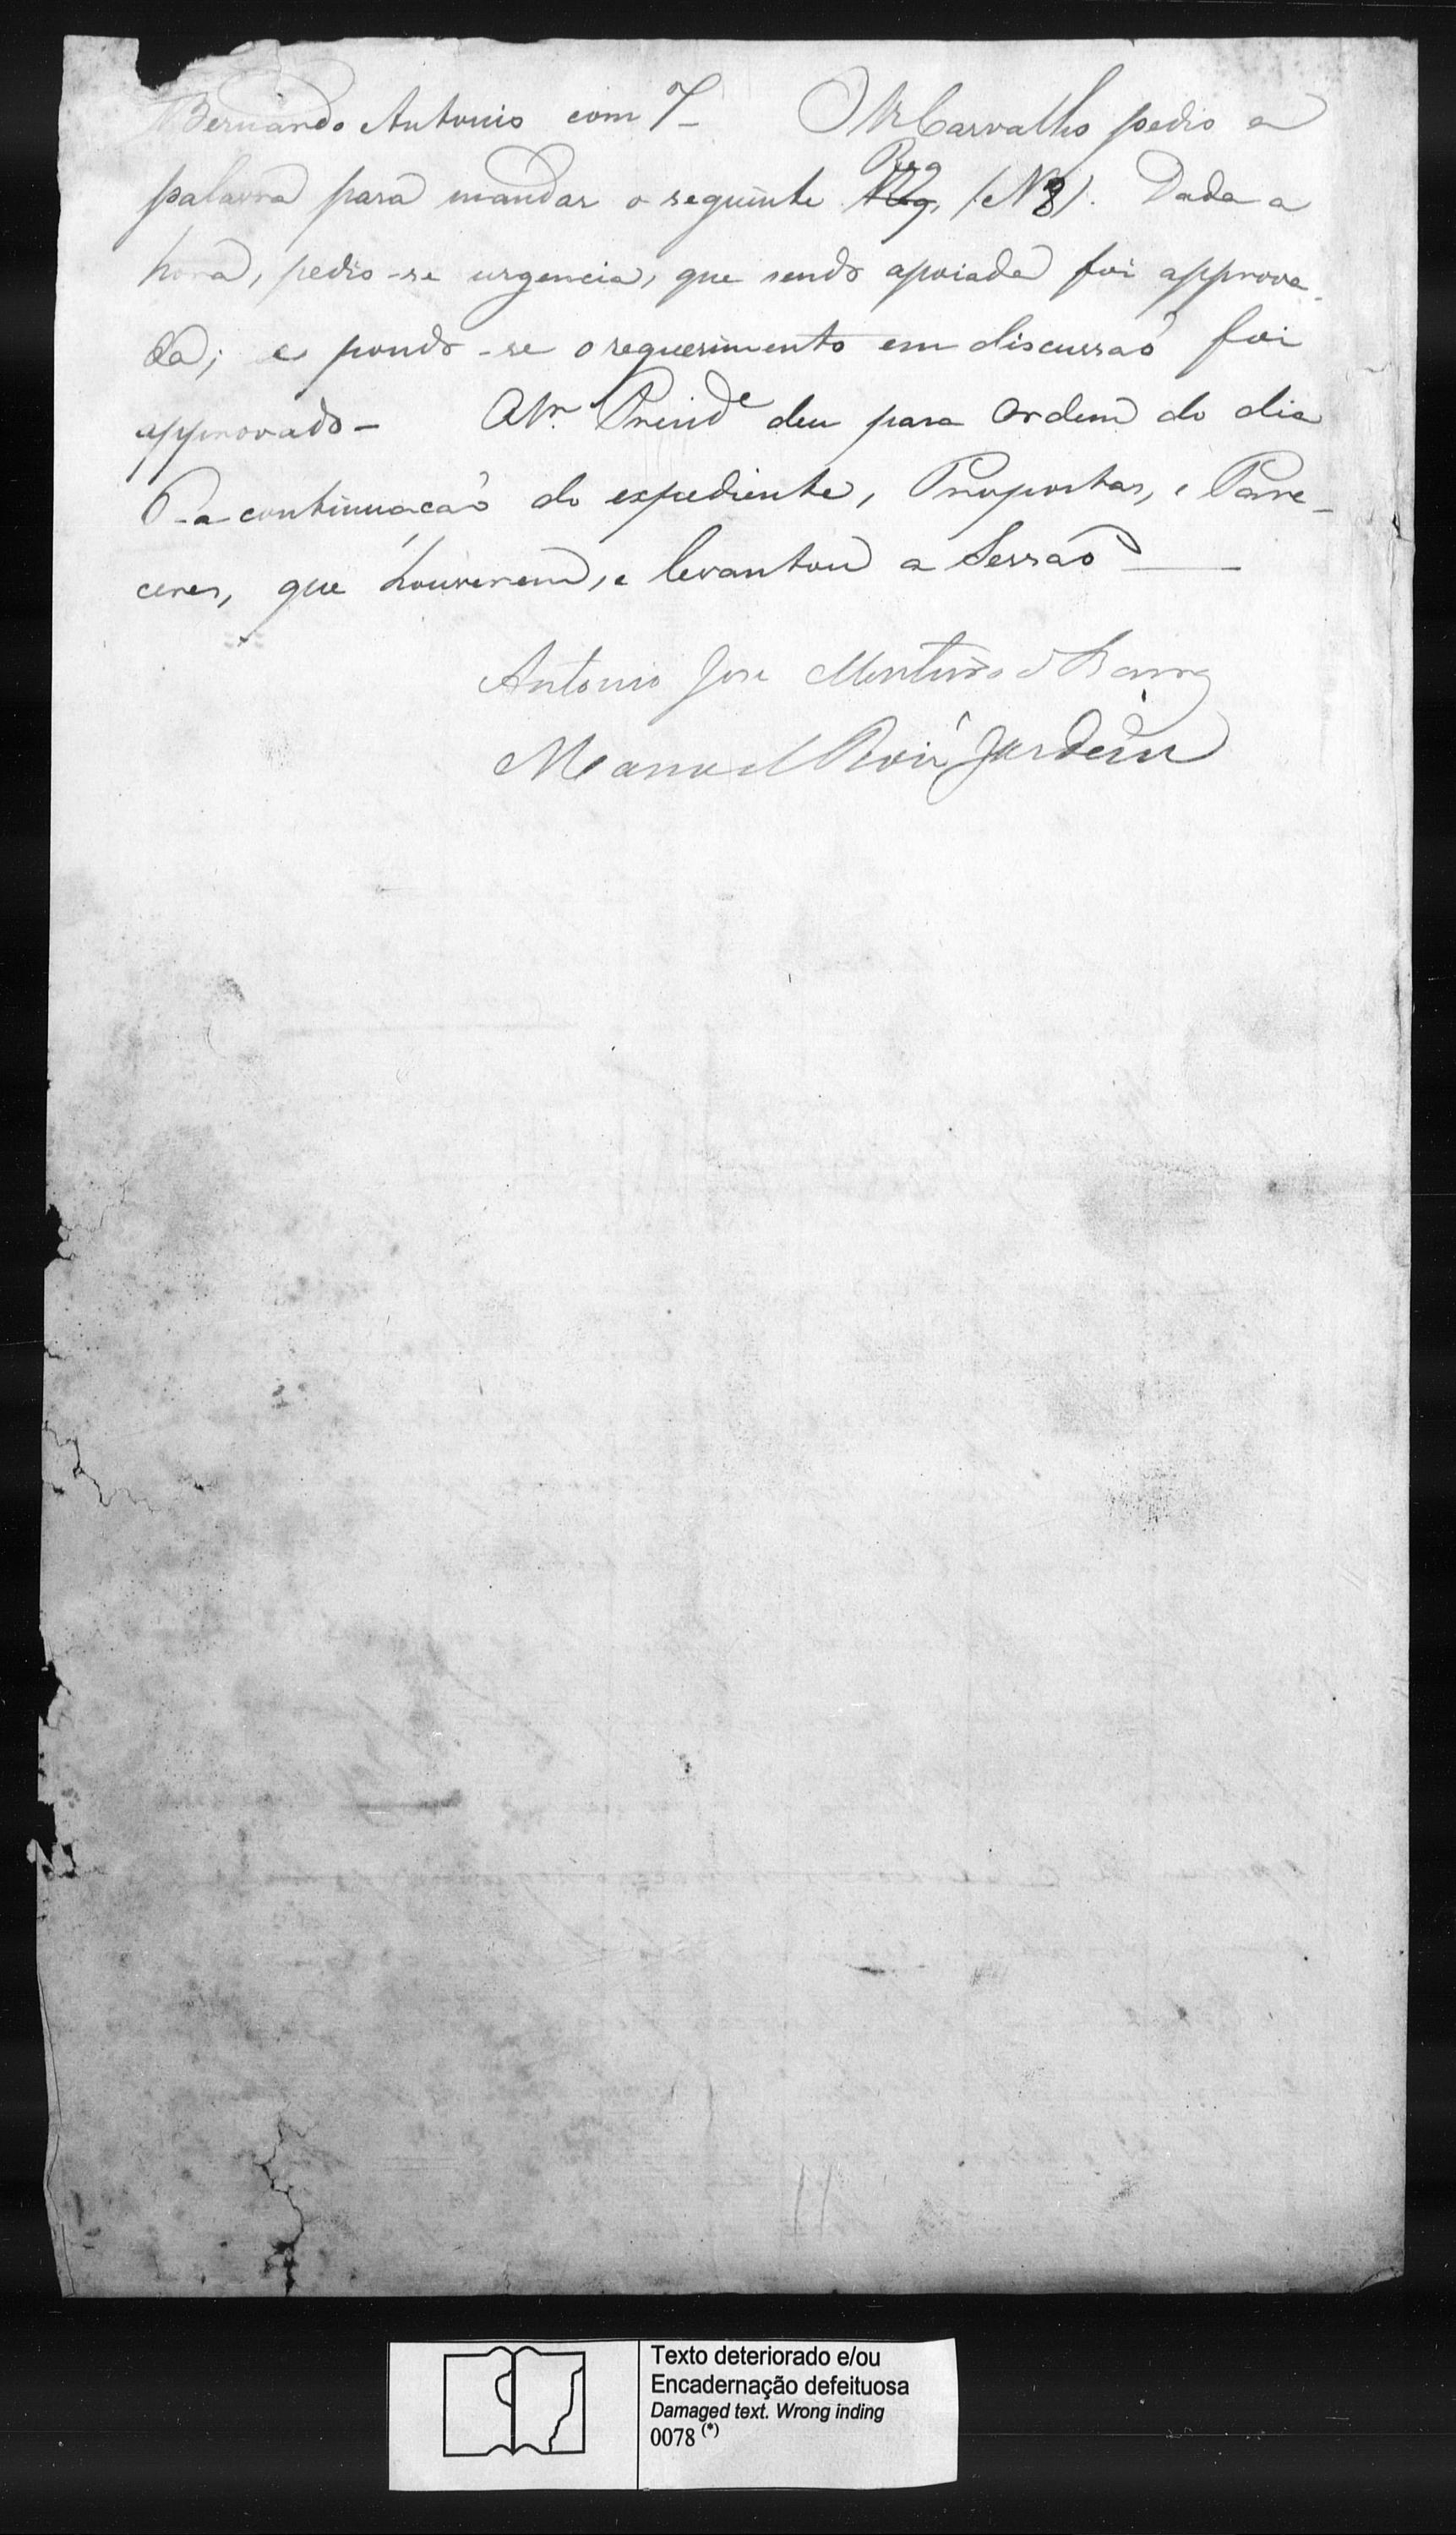 Bernardo Antonio com 7 – O Sr Carvalho pedio a
palavra para mandar o seguinte Req (N 8). Dada a
hora, pedio-se urgencia, que sendo apoiada foi approva-
da; e pondo-se o requerimento em discussaõ foi
approvado – O Sr. Presid.e deu para Ordem do dia
a continuaçaõ do expediente, Propostas, e Pare-
ceres, que houverem, e levantou a Sessaõ —
Antonio Jose Monteiro de Barros
Manoel Roiz Jardim
Texto deteriorado e/ou
Encadernação defeituosa
Damaged text. Wrong inding
0078 (*)